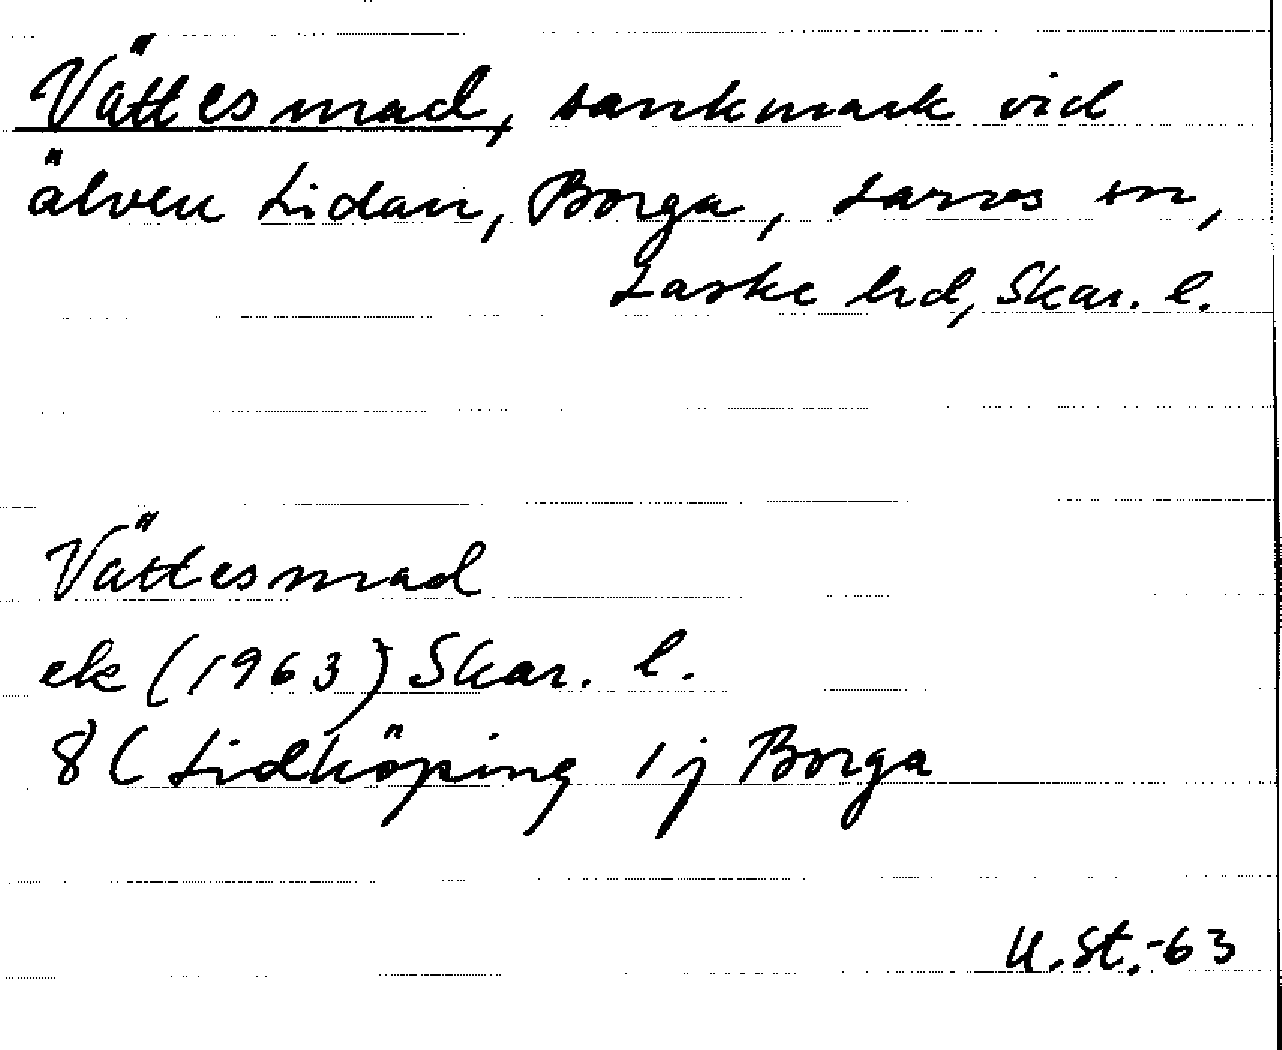 Vättesmad, sankmark vid
älven Lidan, Borga, Larvs sn,
Laske hrd, Skar. l.
Vättesmad
ek (1963) Skar. l.
8C Lidköping 1j Borga
U.St.-63